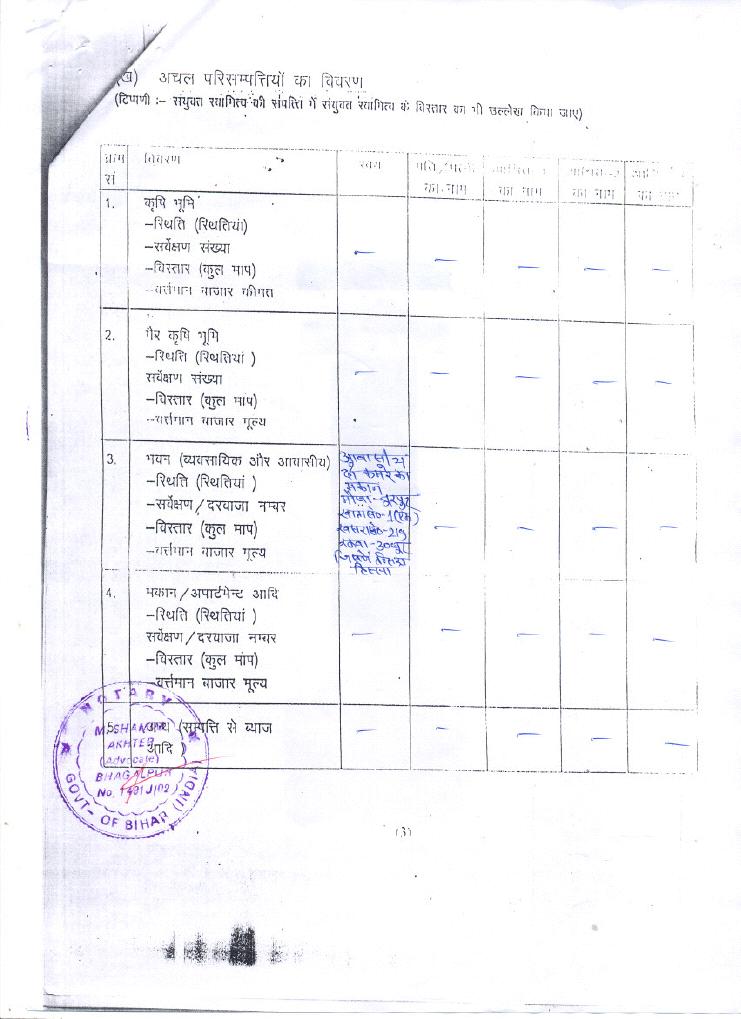 (ख) अचल परिसम्पत्तियों का विवरण
(टिप्पणी :– संयुक्त स्वामित्व की संपत्ति में संयुक्त स्वामित्व के विस्तार का भी उल्लेख किया जाए)
क्रम सं
विवरण
स्वयं
पति/पत्नी का नाम
आश्रित-1 का नाम
आश्रित-2 का नाम
का नाम
1.
कृषि भूमि
–स्थिति (स्थितियां)
–सर्वेक्षण संख्या
–विस्तार (कुल माप)
–वर्त्तमान बाजार कीमत
— — — — —
2.
गैर कृषि भूमि
–स्थिति (स्थितियां )
सर्वेक्षण संख्या
–विस्तार (कुल माप)
–वर्त्तमान बाजार मूल्य
— — — — —
3.
भवन (व्यवसायिक और आवासीय)
–स्थिति (स्थितियां )
–सर्वेक्षण/दरवाजा नम्बर
–विस्तार (कुल माप)
–वर्त्तमान बाजार मूल्य
आवासीय
दो कमरे का
मकान
खाता सं०-1(एक)
हिस्सा
— — — —
4.
मकान/अपार्टमेन्ट आदि
–स्थिति (स्थितियां )
सर्वेक्षण/दरवाजा नम्बर
–विस्तार (कुल माप)
–वर्त्तमान बाजार मूल्य
— — — — —
5.
अन्य (सम्पत्ति से ब्याज
आदि )
— — — — —
NOTARY
AKHTER
(Advocate)
BHAGALPUR
GOVT- OF BIHAR (INDIA)
(3)